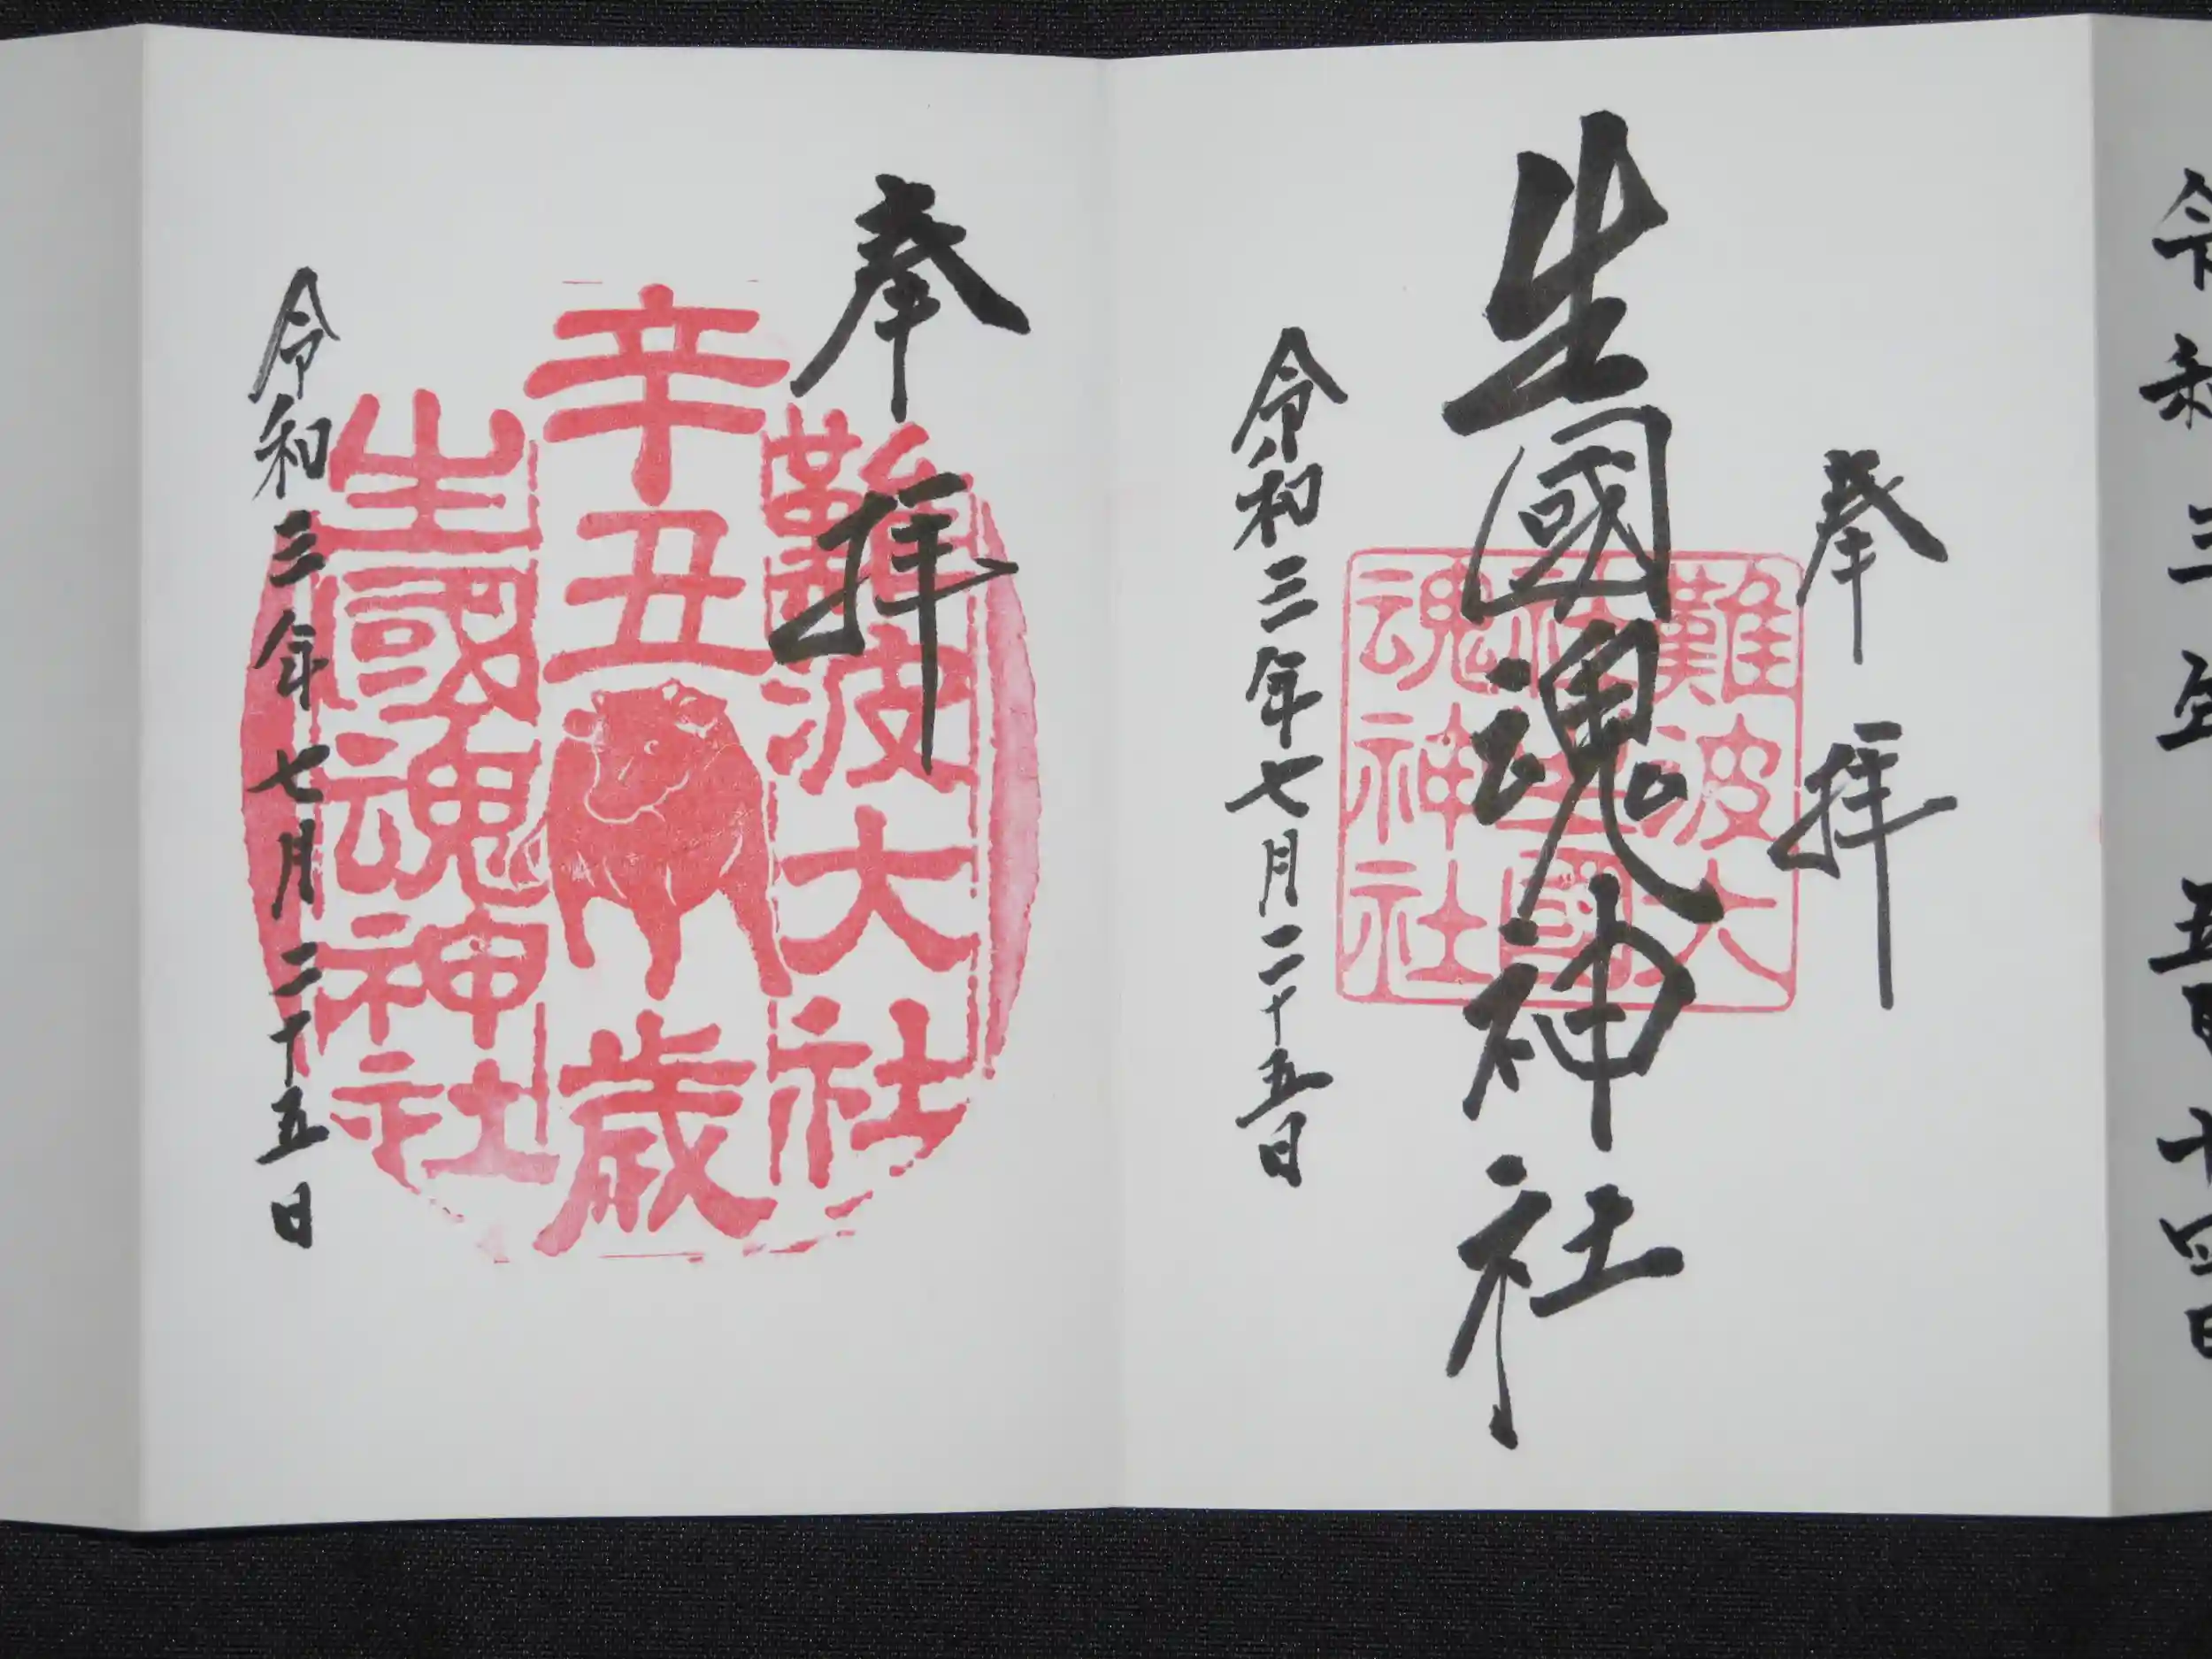 令和三年五月十四日
奉拝
生國魂神社
難波大
社生國
魂神社
令和三年七月二十五日
奉拝
難波大社
辛丑歳
生國魂神社
令和三年七月二十五日